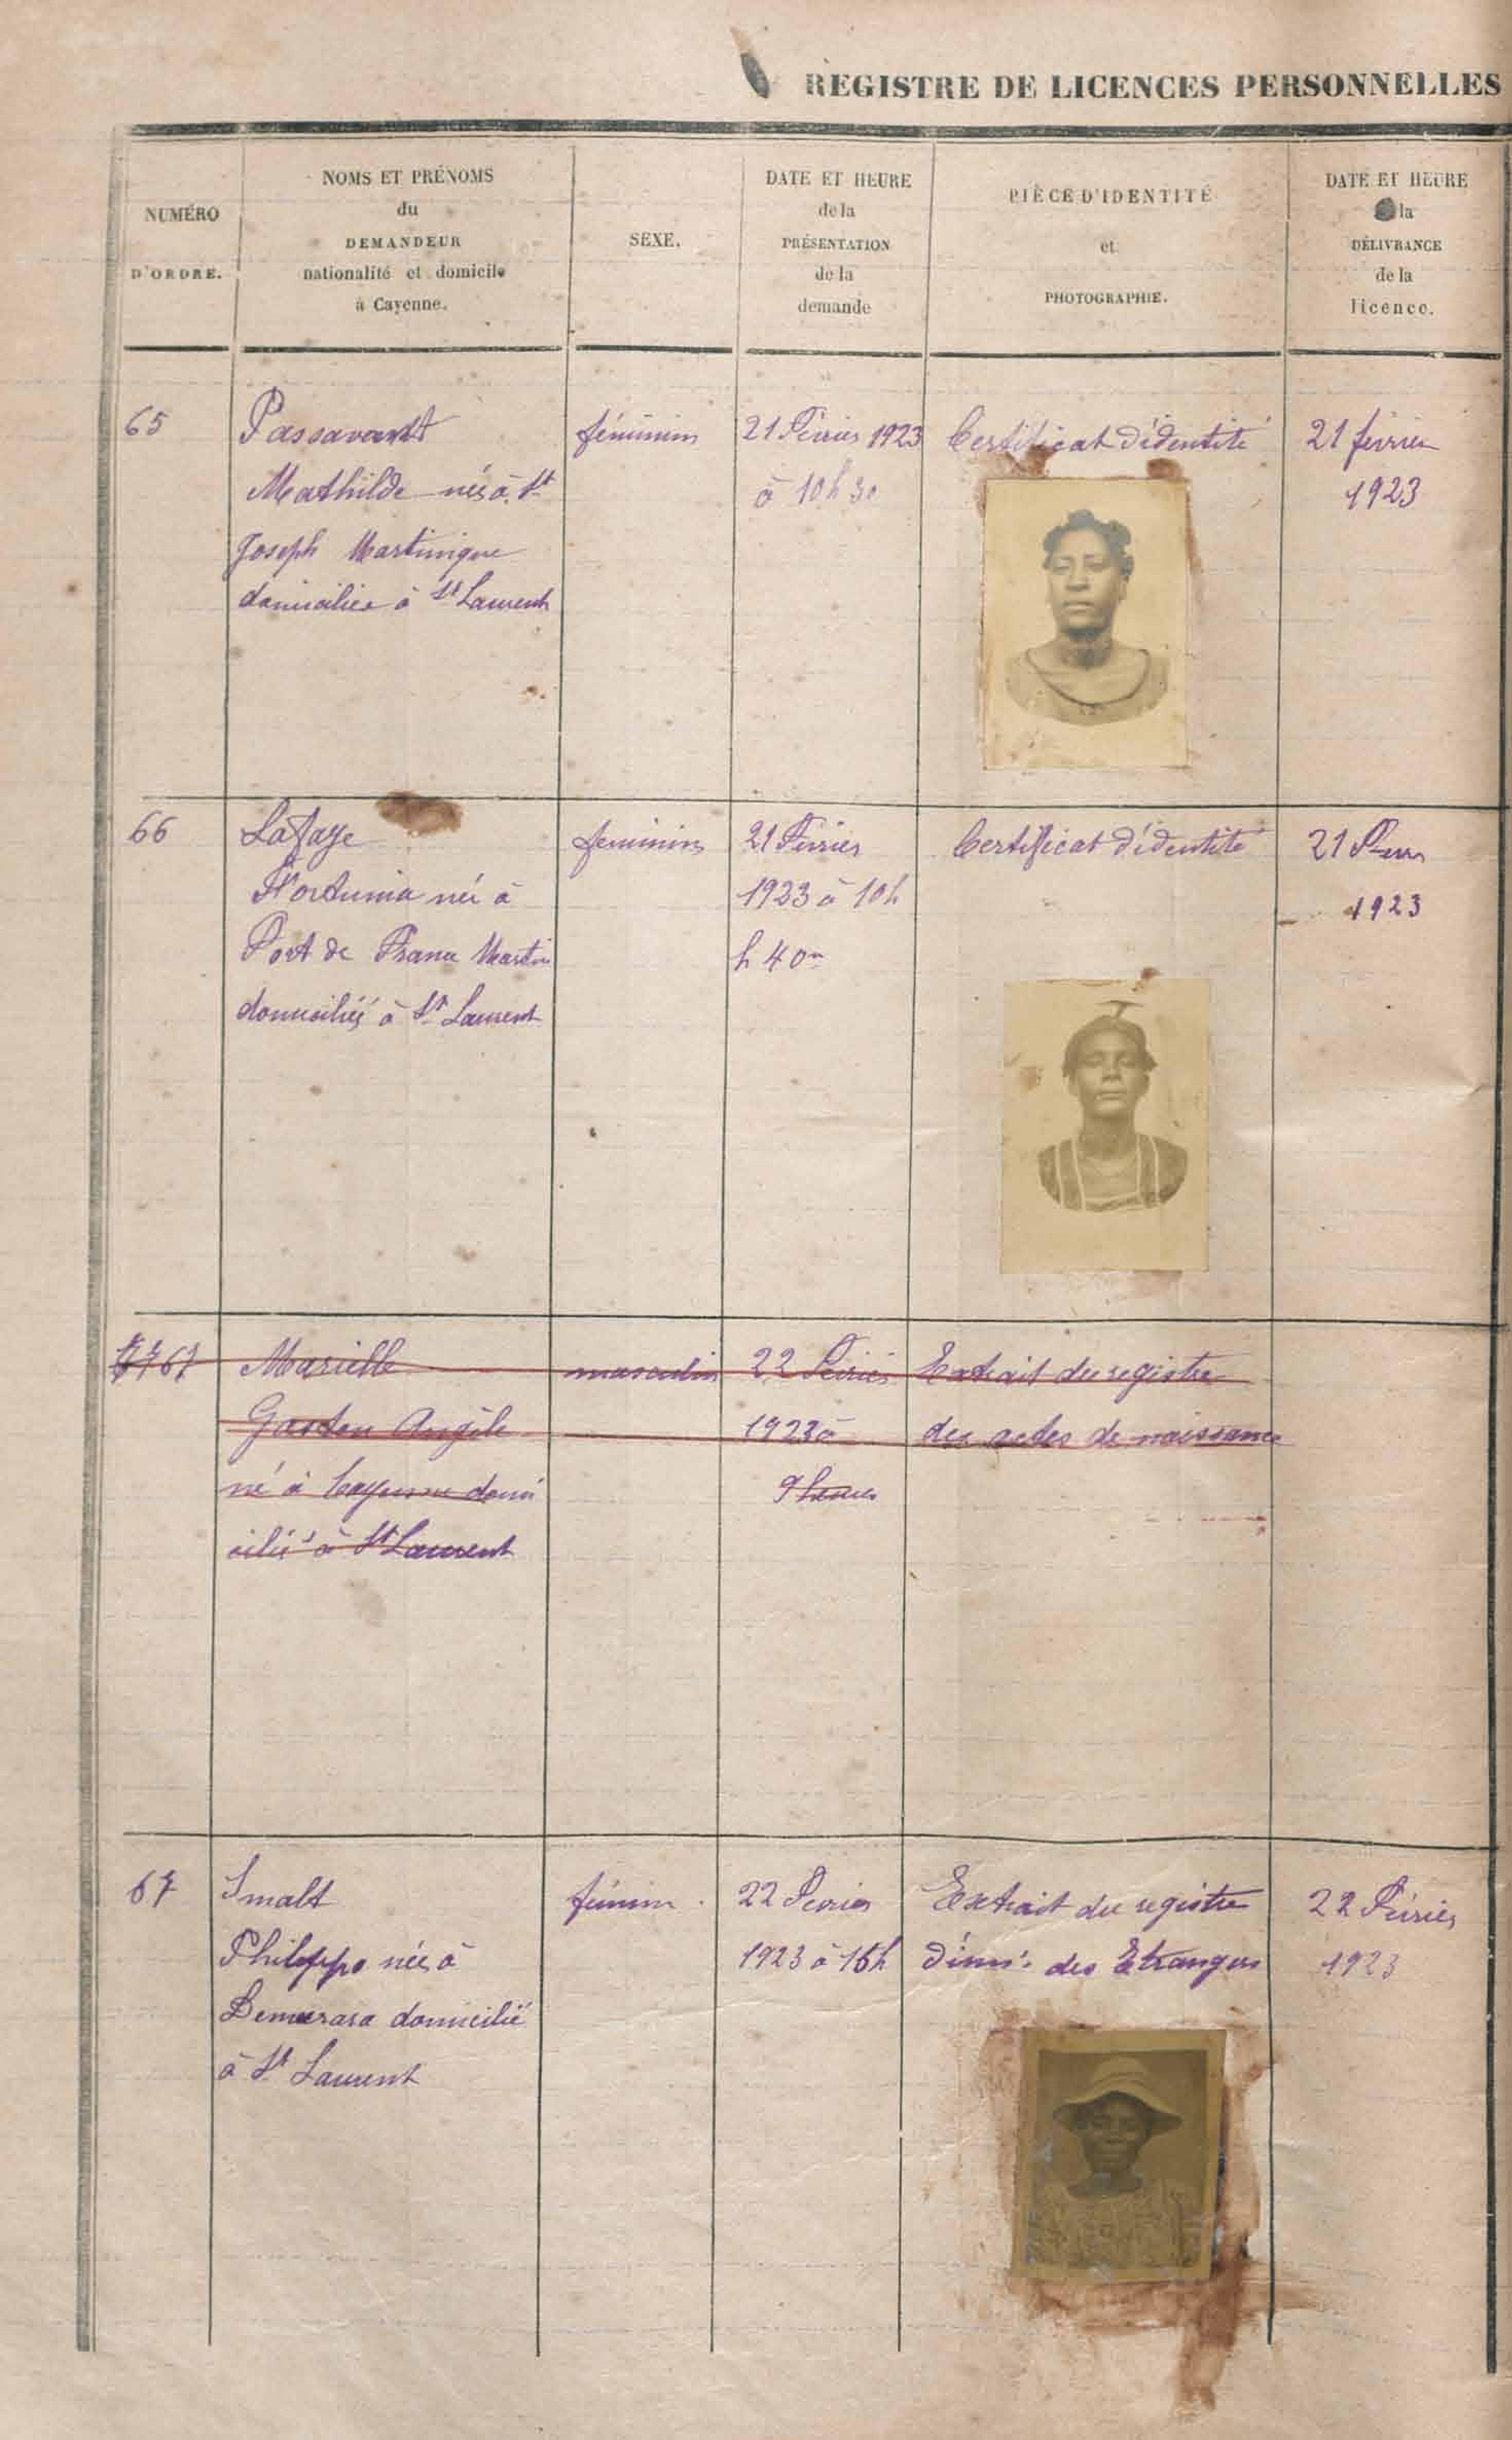 REGISTRE DE LICENCES PERSONNELLES
NUMÉRO
D'ORDRE.
NOMS ET PRÉNOMS
du
DEMANDEUR
nationalité et domicile
à Cayenne.
SEXE.
DATE ET HEURE
de la
PRÉSENTATION
de la
demande
PIÈCE D'IDENTITÉ
et
PHOTOGRAPHIE.
DATE ET HEURE
la
DÉLIVRANCE
de la
licence.
65
Passavant
Mathilde née à St
Joseph Martinique
domiciliée à St Laurent
féminin
21 Février 1923
à 10h 30
Certificat d'identité
21 février
1923
66
Lafaye
née à
Fort de France Martini
domiciliée à St Laurent
feminins
21 Février
1923 à 10h
h 40m
Certificat d'identité
21
1923
67
Marielle
Gaston Angèle
né à Cayenne domi
cilié à St Laurent
masculin
22 Février
1923 à
9 heures
Extrait du registre
des actes de naissance
67
Smalt
Philippe née à
Demerara domicilié
à St Laurent
féminin
22 Fevrier
1923 à 15h
Extrait du registre
d'imi. des Etrangers
22 Février
1923